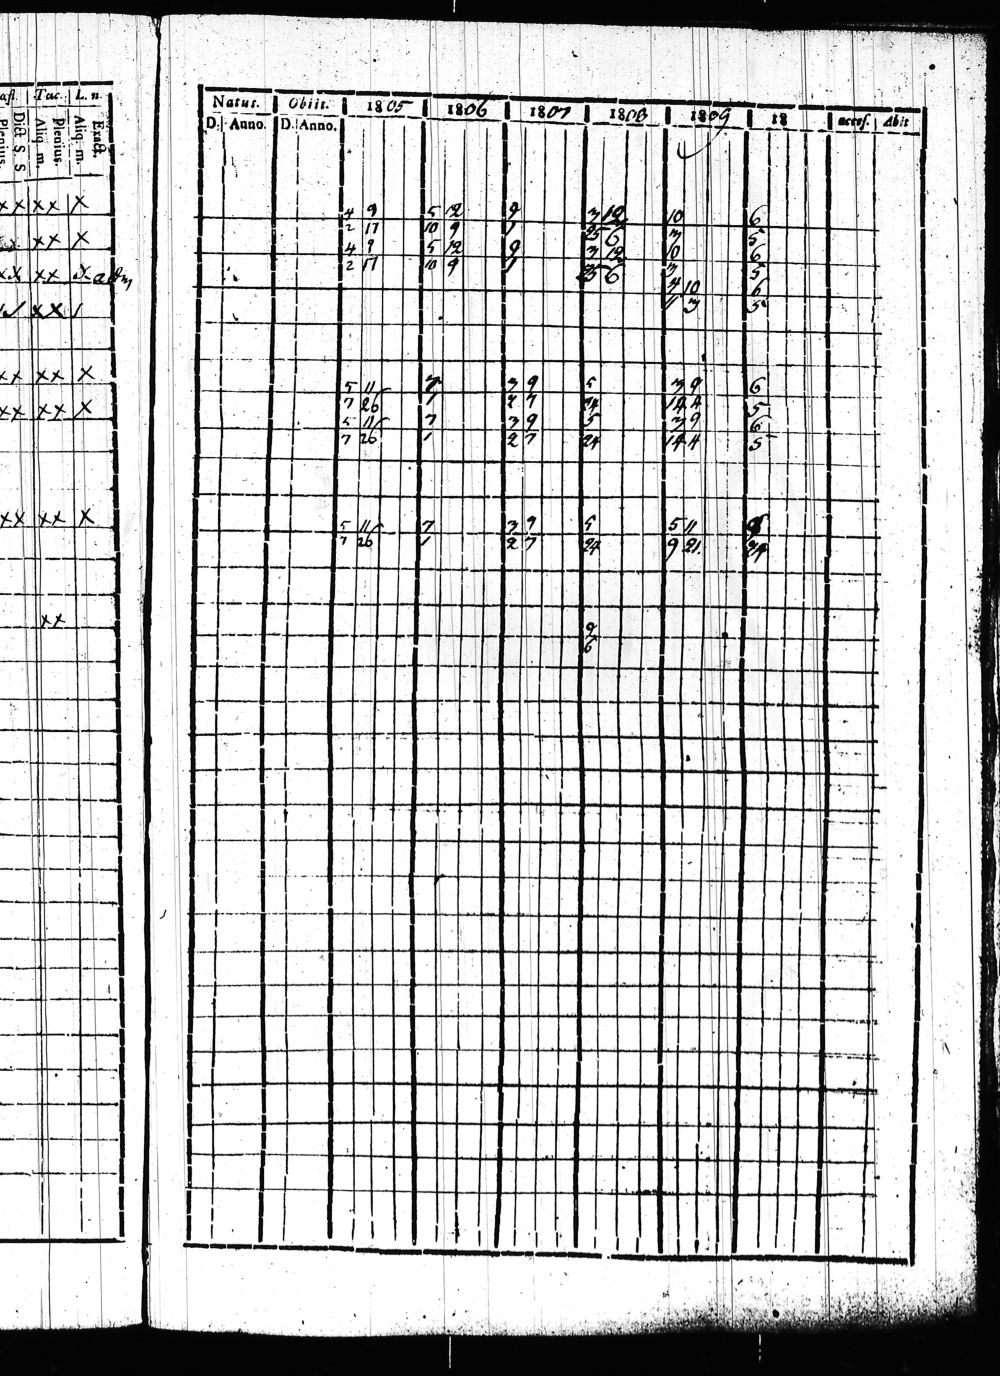 Tac. L. n.
Dict. S. S
Plenius.
Aliq. m.
Plenius.
Aliq. m.
Exact.
xx xx x
xx x
xx xx x adm
xx
xx xx x
xx xx x
xx xx x
xx
Natus. Obiit. 1805 1806 1807 1808 1809 18 accес. Abit
D. Anno. D. Anno.
4 9 5 12 9 3 12 10 6
2 17 10 9 1 25 6 3 5
4 9 5 12 9 3 12 10 6
2 17 10 9 1 25 6 3 5
4 10 6
1 3 5
5 11 7 3 9 5 3 9 6
7 26 1 2 7 24 14 4 5
5 11 7 3 9 5 3 9 6
7 26 1 2 7 24 14 4 5
5 11 7 3 9 5 5 11
7 26 1 2 7 24 9 21
9
6